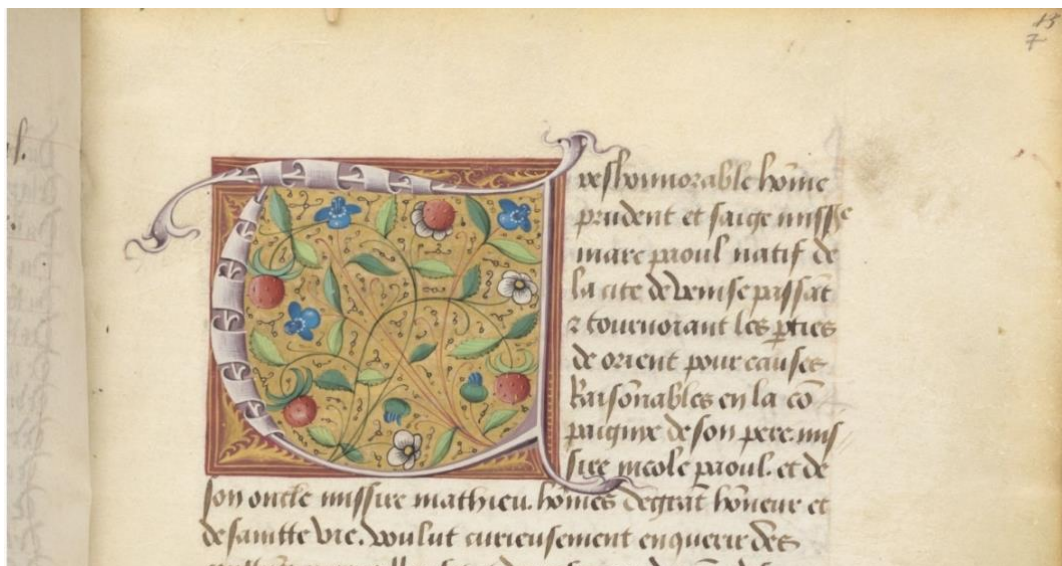 15
7
Tres honnorable hōme
prudent et saige missᵉ
marc paoul natif de
la cite de venise passāt
⁊ tournoiant les pties
de orient pour causes
Raisōnables en la cō
paignie de son pere mis
sire nicole paoul. et de
son oncle missire mathieu. hōmes de grāt hōneur et
de saintte vie. voulut curieusement enquerir des